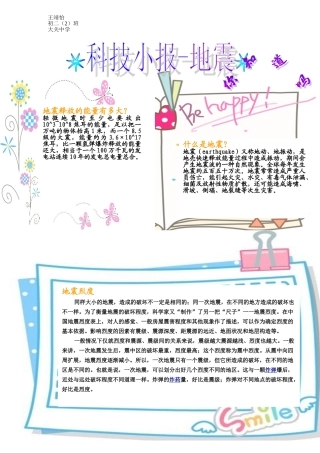 王绮怡
初二（2）班
大关中学
科技小报-地震
你知道吗
Be happy!
地震释放的能量有多大?
轻微地震时至少也要放出
10^3~10^8 焦耳的能量，足以把一
万吨的物体抬高1米，而一个8.5
级的大震，能量约为 3.6×10^17
焦耳，比一颗氢弹爆炸释放的能量
还大，相当于一个100万千瓦的发
电站连续10年的发电总电量总合。
·什么是地震?
地震（earthquake）又称地动、地振动，是
地壳快速释放能量过程中造成振动，期间会
产生地震波的一种自然现象。全球每年发生
地震约五百五十万次。地震常常造成严重人
员伤亡，能引起火灾、水灾、有毒气体泄漏、
细菌及放射性物质扩散，还可能造成海啸、滑
坡、崩塌、地裂缝等次生灾害。
地震烈度
同样大小的地震，造成的破坏不一定是相同的；同一次地震，在不同的地方造成的破坏也
不一样。为了衡量地震的破坏程度，科学家又“制作”了另一把“尺子”一一地震烈度。在中
国地震烈度表上，对人的感觉、一般房屋震害程度和其他现象作了描述，可以作为确定烈度的
基本依据。影响烈度的因素有震级、震源深度、距震源的远近、地面状况和地层构造等。
一般情况下仅就烈度和震源、震级间的关系来说，震级越大震源越浅、烈度也越大。一般
来讲，一次地震发生后，震中区的破坏最重，烈度最高；这个烈度称为震中烈度。从震中向四
周扩展，地震烈度逐渐减小。所以，一次地震只有一个震级，但它所造成的破坏，在不同的地
区是不同的。也就是说，一次地震，可以划分出好几个烈度不同的地区。这与一颗炸弹爆后，
近处与远处破坏程度不同道理一样。炸弹的炸药量，好比是震级；炸弹对不同地点的破坏程度，
好比是烈度。
Smile